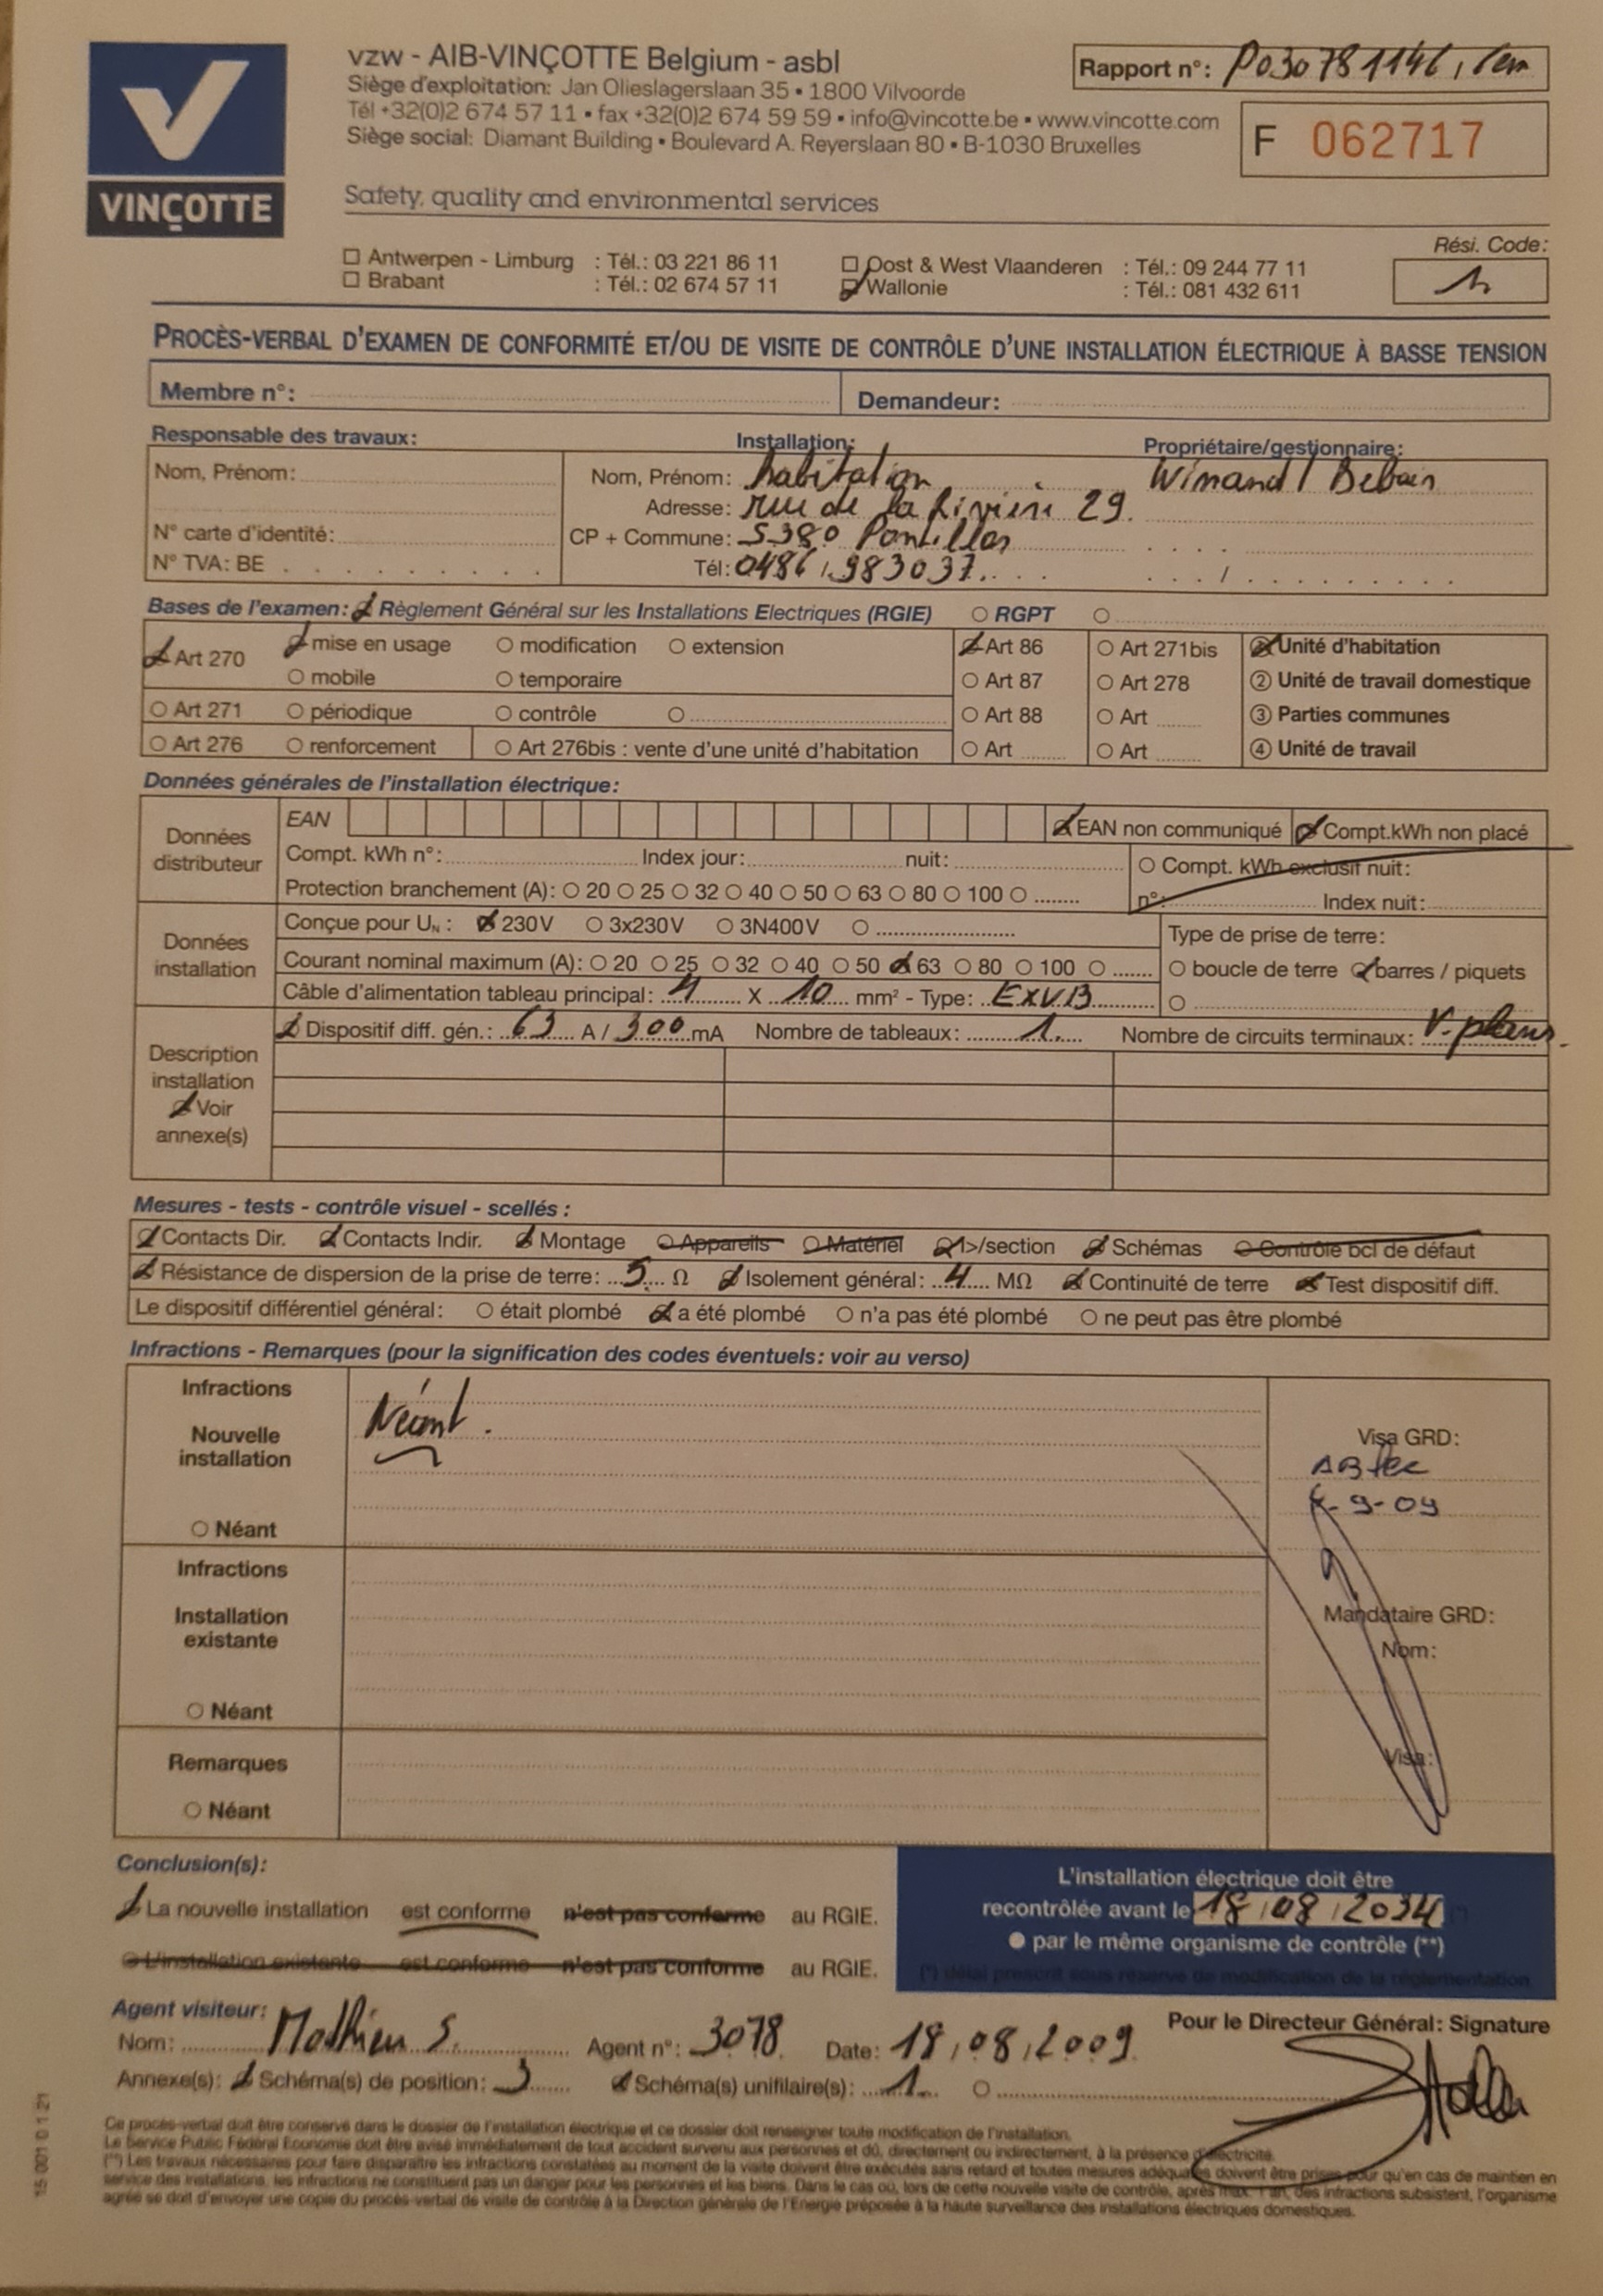 VINÇOTTE
vzw - AIB-VINÇOTTE Belgium - asbl
Siège d'exploitation: Jan Olieslagerslaan 35 • 1800 Vilvoorde
Tél +32(0)2 674 57 11 • fax +32(0)2 674 59 59 • info@vincotte.be • www.vincotte.com
Siège social: Diamant Building • Boulevard A. Reyerslaan 80 • B-1030 Bruxelles
Safety, quality and environmental services
Rapport n°:
F 062717
Rési. Code:
Antwerpen - Limburg : Tél.: 03 221 86 11 Oost & West Vlaanderen : Tél.: 09 244 77 11
Brabant : Tél.: 02 674 57 11 Wallonie : Tél.: 081 432 611
PROCÈS-VERBAL D'EXAMEN DE CONFORMITÉ ET/OU DE VISITE DE CONTRÔLE D'UNE INSTALLATION ÉLECTRIQUE À BASSE TENSION
Membre n°: Demandeur:
Responsable des travaux: Installation: Propriétaire/gestionnaire:
Nom, Prénom: Nom, Prénom: habitation Winand /
Adresse: rue de la Rivière 29.
N° carte d'identité: CP + Commune: 5380 Pontillas
N° TVA: BE Tél: 0486/983037
Bases de l'examen: Règlement Général sur les Installations Electriques (RGIE) RGPT
Art 270 mise en usage modification extension Art 86 Art 271bis 1 Unité d'habitation
mobile temporaire Art 87 Art 278 2 Unité de travail domestique
Art 271 périodique contrôle Art 88 Art 3 Parties communes
Art 276 renforcement Art 276bis : vente d'une unité d'habitation Art Art 4 Unité de travail
Données générales de l'installation électrique:
Données distributeur
EAN EAN non communiqué Compt.kWh non placé
Compt. kWh n°: Index jour: nuit: Compt. kWh exclusif nuit:
Protection branchement (A): 20 25 32 40 50 63 80 100 n°: Index nuit:
Données installation
Conçue pour UN : 230V 3x230V 3N400V Type de prise de terre:
Courant nominal maximum (A): 20 25 32 40 50 63 80 100 boucle de terre barres / piquets
Câble d'alimentation tableau principal: 4 X 10 mm² - Type: EXVB
Description installation
Voir annexe(s)
Dispositif diff. gén.: 63 A / 300 mA Nombre de tableaux: 1. Nombre de circuits terminaux: V. plans.
Mesures - tests - contrôle visuel - scellés :
Contacts Dir. Contacts Indir. Montage Appareils Matériel I>/section Schémas Contrôle bcl de défaut
Résistance de dispersion de la prise de terre: 5 Ω Isolement général: 4 MΩ Continuité de terre Test dispositif diff.
Le dispositif différentiel général: était plombé a été plombé n'a pas été plombé ne peut pas être plombé
Infractions - Remarques (pour la signification des codes éventuels: voir au verso)
Infractions
Nouvelle installation
Néant.
Néant
Visa GRD:
-9-09
Infractions
Installation existante
Néant
Mandataire GRD:
Nom:
Visa:
Remarques
Néant
Conclusion(s):
La nouvelle installation est conforme n'est pas conforme au RGIE.
L'installation existante est conforme n'est pas conforme au RGIE.
L'installation électrique doit être
recontrôlée avant le 18/08/2034 (*)
par le même organisme de contrôle (**)
(*) délai prescrit sous réserve de modification de la réglementation
Agent visiteur: Pour le Directeur Général: Signature
Nom: Mathieu S. Agent n°: 3078 Date: 18/08/2009
Annexe(s): Schéma(s) de position: 3 Schéma(s) unifilaire(s): 1
Ce procès-verbal doit être conservé dans le dossier de l'installation électrique et ce dossier doit renseigner toute modification de l'installation.
Le Service Public Fédéral Economie doit être avisé immédiatement de tout accident survenu aux personnes et dû, directement ou indirectement, à la présence d'électricité.
(**) Les travaux nécessaires pour faire disparaître les infractions constatées au moment de la visite doivent être exécutés sans retard et toutes mesures adéquates doivent être prises pour qu'en cas de maintien en
service des installations, les infractions ne constituent pas un danger pour les personnes et les biens. Dans le cas où, lors de cette nouvelle visite de contrôle, après max. 1 an, des infractions subsistent, l'organisme
agréé se doit d'envoyer une copie du procès-verbal de visite de contrôle à la Direction générale de l'Energie préposée à la haute surveillance des installations électriques domestiques.